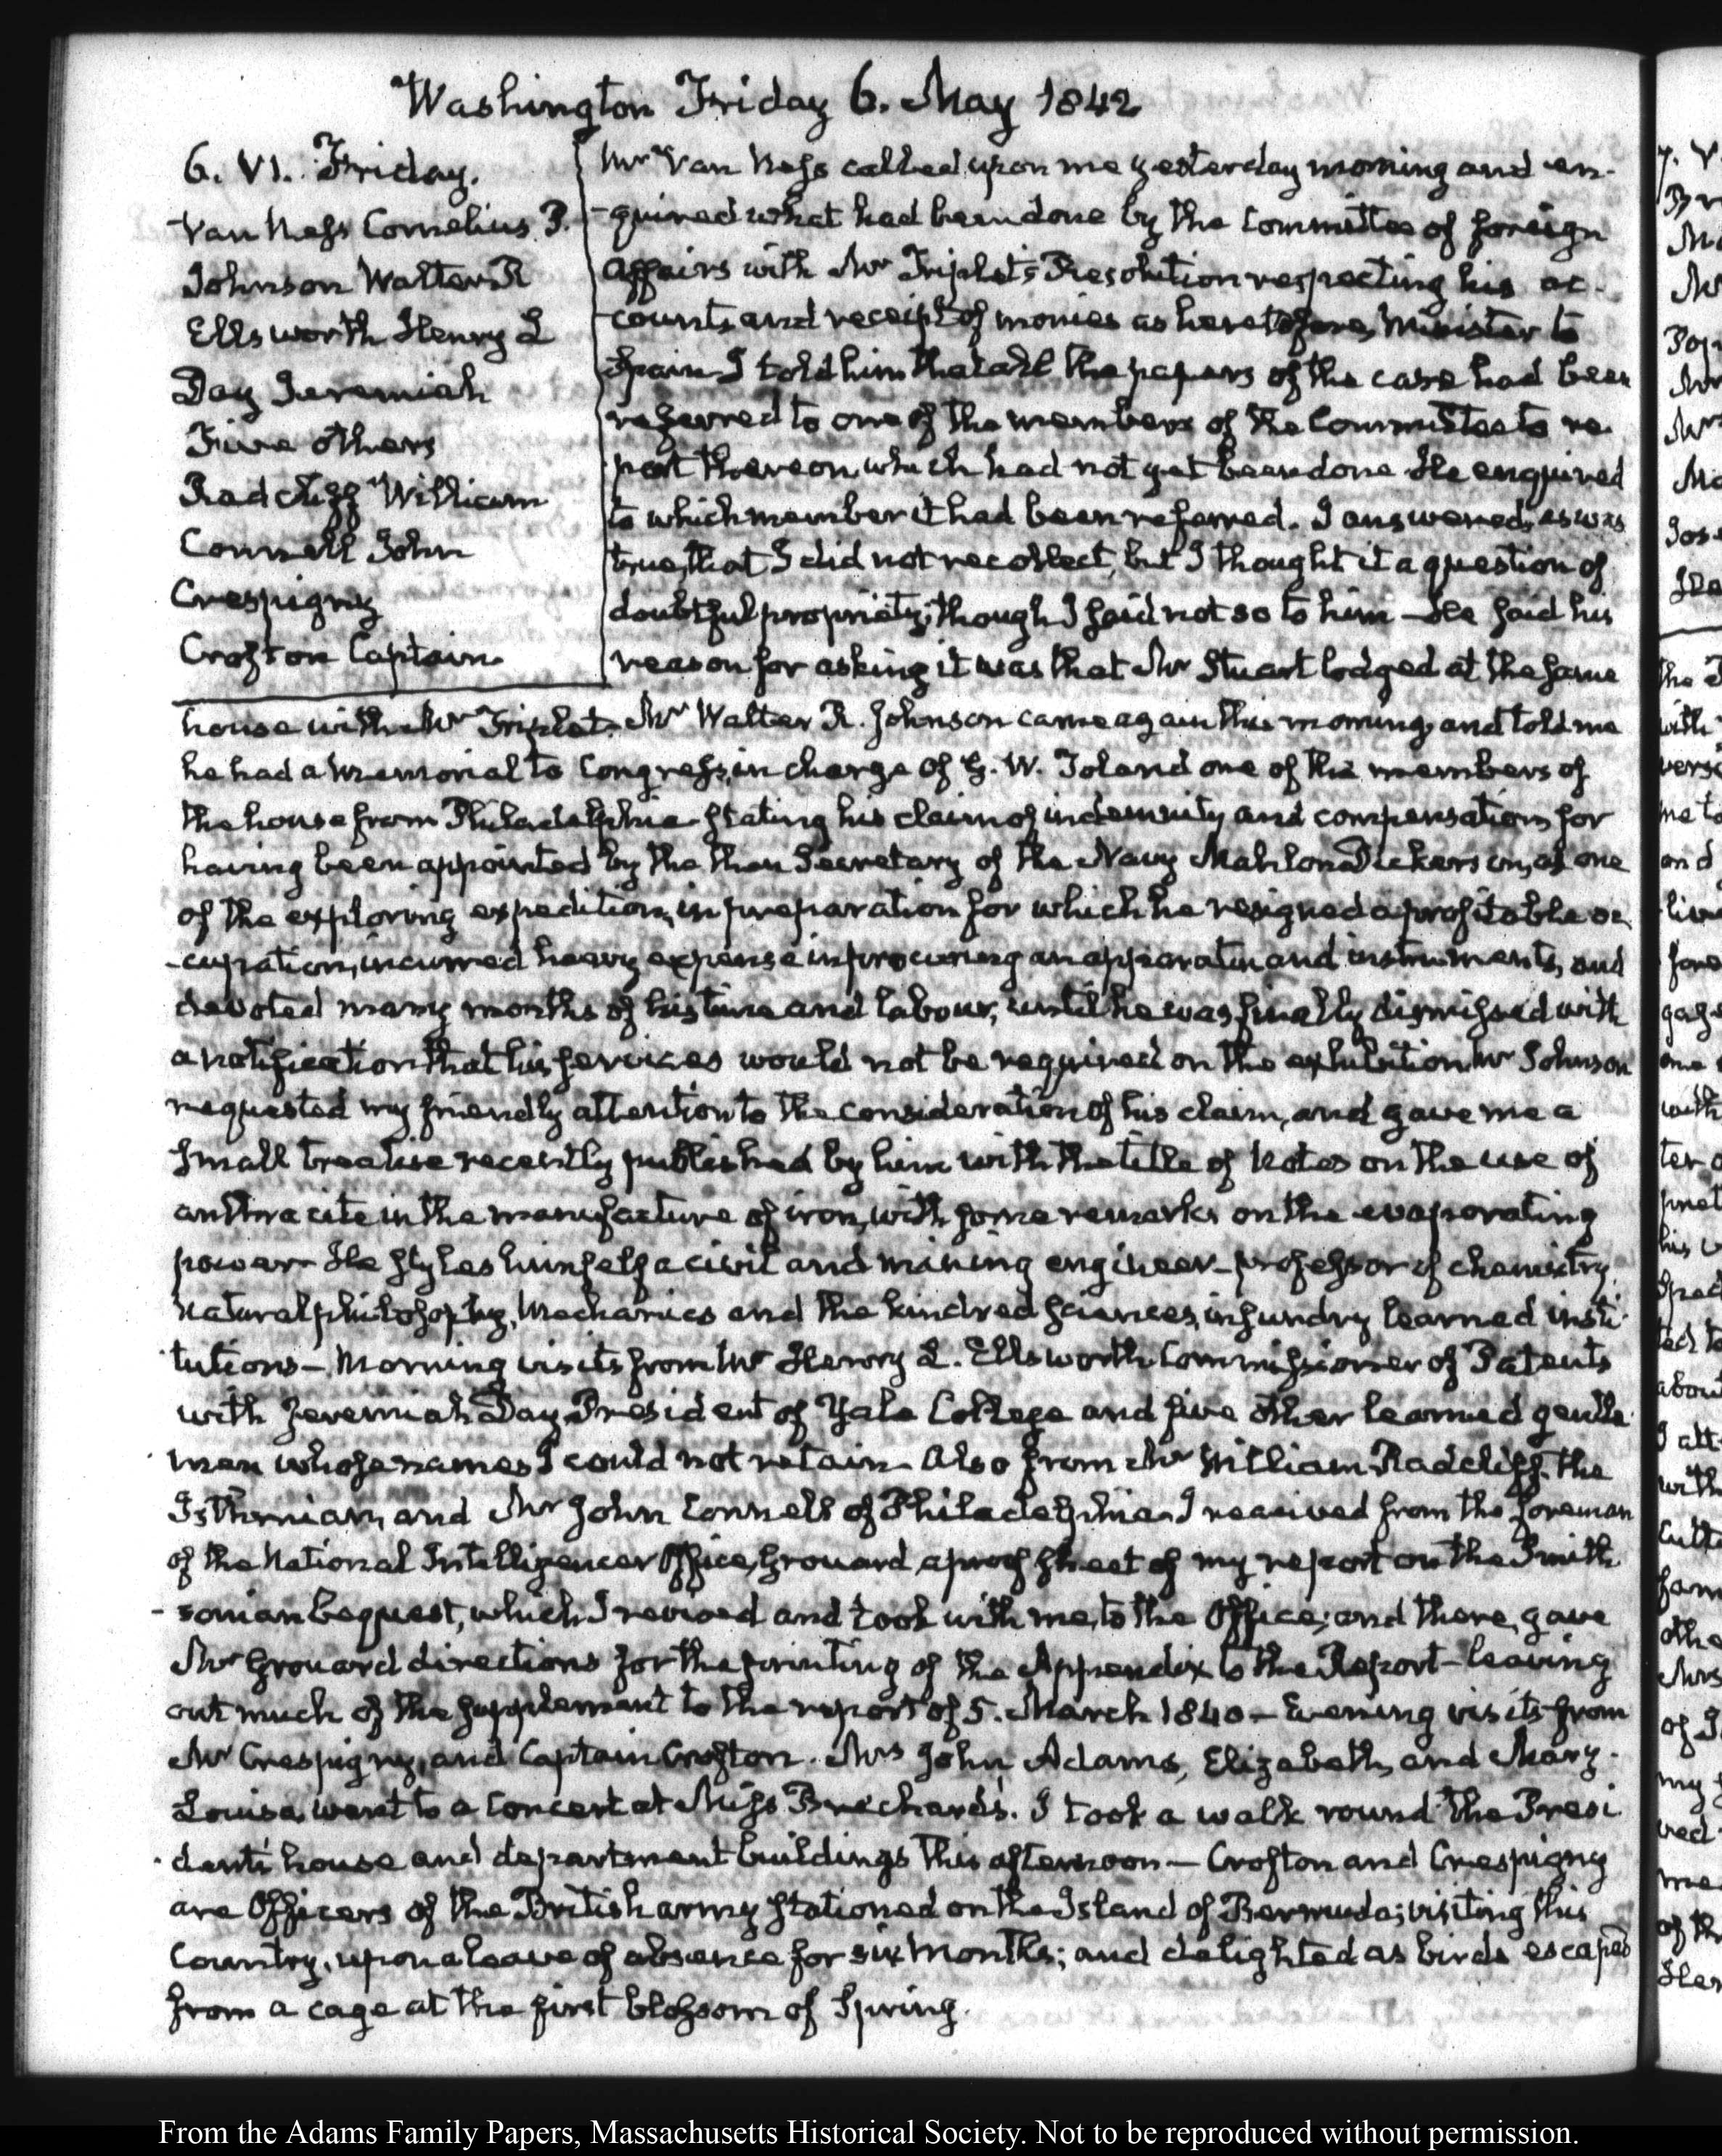 Washington Friday 6. May 1842
6. VI. Friday.
Van Ness Cornelius P.
Johnson Walter R
Ellsworth Henry L
Day Jeremiah
Five others
Radcliff William
Connell John
Crespigny
Crofton Captain
Mr Van Ness called upon me yesterday morning and en-
-quired what had been done by the Committee of foreign
Affairs with Mr Triplet's Resolution respecting his ac-
-counts and receipt of monies as heretofore, Minister to
Spain. I told him that all the papers of the case had been
referred to one of the members of the Committee to re-
port thereon, which had not yet been done. He enquired
to which member it had been referred. I answered, as was
true, that I did not recollect, but I thought it a question of
doubtful propriety; though I said not so to him — He said his
reason for asking it was that Mr Stuart lodged at the same
house with Mr Triplet. Mr Walter R. Johnson came again this morning, and told me
he had a memorial to Congress, in charge of G. W. Toland one of the members of
the house from Philadelphia stating his claim of indemnity and compensation, for
having been appointed by the then Secretary of the Navy Mahlon Dickerson, as one
of the exploring expedition, in preparation for which he resigned a profitable oc
-cupation, incurred heavy expense in procuring an apparatus and instruments, and
devoted many months of his time and labour, until he was finally dismissed with
a notification that his services would not be required on the exhibition Mr Johnson
requested my friendly attention to the consideration of his claim, and gave me a
small treatise recently published by him with the title of Notes on the use of
anthracite in the manufacture of iron, with some remarks on the evaporating
power — He styles himself a civil and mining engineer — professor of chemistry
Natural philosophy, Mechanics and the kindred sciences, in sundry learned insti-
tutions — Morning visits from Mr Henry L. Ellsworth Commissioner of Patents
with Jeremiah Day President of Yale College and five other learned gentle-
men whose names I could not retain. Also from Mr William Radcliff, the
Isthmian, and Mr John Connell of Philadelphia. I received from the foreman
of the National Intelligencer Office, Grouard, a proof sheet of my report on the Smith
-sonian bequest, which I revised and took with me, to the Office; and there, gave
Mr Grouard directions for the printing of the Appendix to the Report — leaving
out much of the supplement to the report of 5. March 1840 — Evening visits from
Mr Crespigny, and Captain Crofton. Mrs John Adams, Elizabeth, and Mary-
Louisa, went to a Concert at Miss Brechard's. I took a walk round the Presi
-dent's house and department buildings this afternoon — Crofton and Crespigny
are Officers of the British army stationed on the Island of Bermuda; visiting this
Country, upon a leave of absence for six months; and delighted as birds escaped
from a cage at the first blossom of Spring.
From the Adams Family Papers, Massachusetts Historical Society. Not to be reproduced without permission.